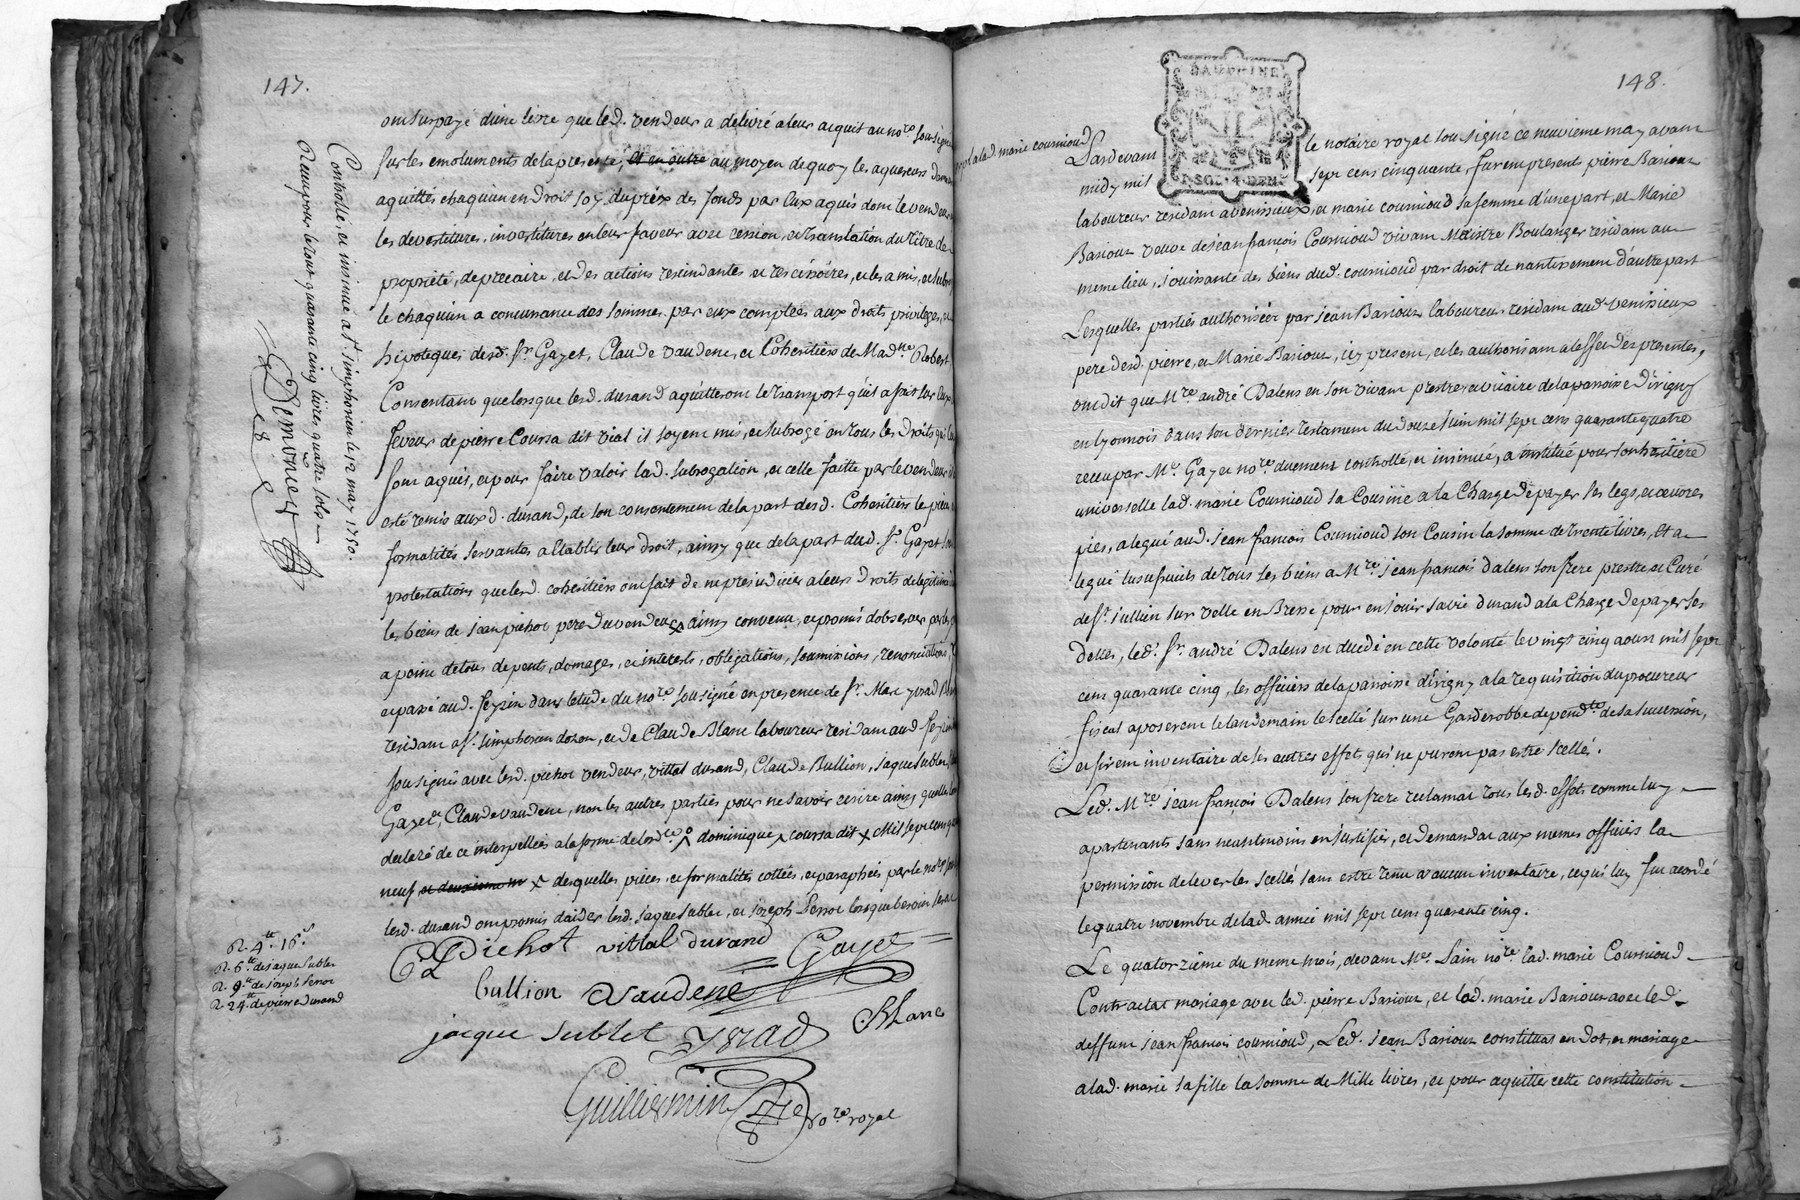 147.
ont surpayé d'une livre que led. vendeur a délivré a leur acquit au no.re sousigné
sur les emoluments de la presente, et en outre au moyen de quoy les aquereurs
aquittés chaquun en droit soy du préx des fonds par eux aquis dont le vendeur
les devestitures, investitures en leur faveur avec cession, et translation du titre de
propriété, de precaire, et des actions rescindantes et rescisoires, et les a mis, et subro
le chaquun a concurrance des sommes par eux comptées aux droits privileges, et
hipoteques desd. Sr. Gayet, Claude vaudene, et Coheritiers de Mad.lle Robert
Consentant que lorsque lesd. durand aquitteront le transport qu'il a fait sur eux
faveur de pierre Coursa dit vial il soyent mis, et subrogé en tous les droits qui
sont aquis, et pour faire valoir lad. subrogation, et celle faitte par le vendeur
esté remis auxd. durand, de son consentement de la part desd. Coheritiers le
formalités servantes a Etablir leur droit, ainsy que de la part dud. Sr. Gayet
protestations que lesd. coheritiers ont fait de ne prejudicier a leurs droits de legitime
les biens de jean pichot pere du vendeur ainsy convenu, et promis d'observer par les
a peine de tous depents, domages, et interests, obligations, soumissions, renonciations,
et passé aud. feyzin dans letude du no.re sousigné en presence de Sr. Marc yvrad
residant a St. simphorien dozon, et de Claude Blanc laboureur residant aud. feyzin
sousignés avec lesd. pichot vendeur, vittal durand, Claude Bullion, jaque sublet,
Gayet, Claude vaudene, non les autres parties pour ne savoir ecrire ainsy quelles
declaré de ce interpellées a la forme de lord.ce dominique coursa dit Mil sept cens
neuf et deuxieme desquelles pieces, et formalités cottées, et paraphées par le no.re
lesd. durand ont promis d'aider lesd. jaque sublet, et joseph Perrot lorsque besoin sera
Controllé, et insinué a St. simphorien le 12 may 1750.
Receu pour le tout quarante cinq livres quatre sols
Demonet
R. 4.tt 16.s
R. 6.tt de jaque sublet
R. 9.tt de joseph Perrot
R. 24.tt de pierre durand
C. Pichot vittal durand Gayet
bullion Vaudene
jacque sublet yvrad Blanc
Guillermin no.re royal
148.
DAUPHINE
SOL. 4 DEN.
lad. marie cournioud
Pardevant le notaire royal sousigné ce neuvieme may avant
midy mil sept cens cinquante, furent present pierre Barioux
laboureur residant a venissieux, et marie cournioud sa femme d'une part, et Marie
Barioux veuve de jean françois Cournioud vivant Maistre Boulanger residant au
meme lieu, jouissante des biens dud. courniou​d par droit de nantissement d'autre part
Lesquelles parties authorisées par jean Barioux laboureur residant aud. venissieux
pere desd. pierre, et Marie Barioux, icy present, et les authorisant a leffet des presentes,
ont dit que M.re andré Dalens en son vivant prestre et vicaire de la paroisse Dirigny
en lyonnois dans son dernier testament du douze juin mil sept cens quarante quatre
receu par M.e Gayet no.re duement controllé, et insinué, a institué pour son heritiere
universelle lad. marie Courniou​d sa Cousine a la Charge de payer ses legs, et oeuvres
pies, a legué aud. jean françois Courniou​d son Cousin la somme de trente livres, Et a
legué lusufruits de tous ses biens a M.re jean françois Dalens son frere prestre et Curé
de St. jullien sur velle en Bresse pour en jouir sa vie durand a la Charge de payer ses
dettes, led. Sr. andré Dalens est decedé en cette volonté le vingt cinq aoust mil sept
cens quarante cinq, les officiers de la paroisse dirigny a la requisition du procureur
fiscal aposerent le landemain le scellé sur une Garderobbe depend.te de la succession,
et firent inventaire de ses autres effets qui ne purent pas estre scellé.
Led. M.re jean françois Dalens son frere reclamat tous lesd. effets comme luy
apartenants sans neantmoins en justifier, et demandat aux memes officiers la
permission de lever les scellés sans estre tenu d'aucun inventaire, ce qui luy fut acordé
le quatre novembre de lad. année mil sept cens quarante cinq.
Le quatorzieme du meme mois, devant M.e Sain no.re lad. marie Courniou​d
Contractat mariage avec led. pierre Barioux, et lad. marie Barioux avec led.
deffunt jean françois courniou​d, Led. jean Barioux constituat en dot, et mariage
a lad. marie sa fille la somme de Mille livres, et pour aquitter cette constitution